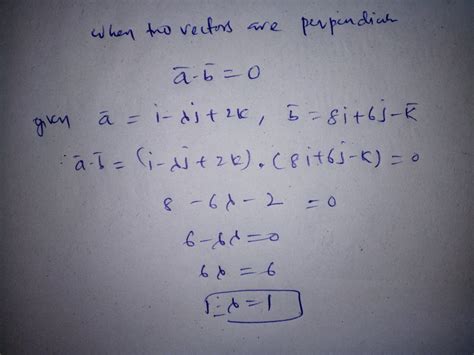 when two vectors are perpendicular
a̅·b̅ = 0
given a̅ = i - λj + 2k, b̅ = 8i + 6j - k̅
∴ a̅·b̅ = (i - λj + 2k) · (8i + 6j - k) = 0
8 - 6λ - 2 = 0
6 - 6λ = 0
6λ = 6
∴ λ = 1